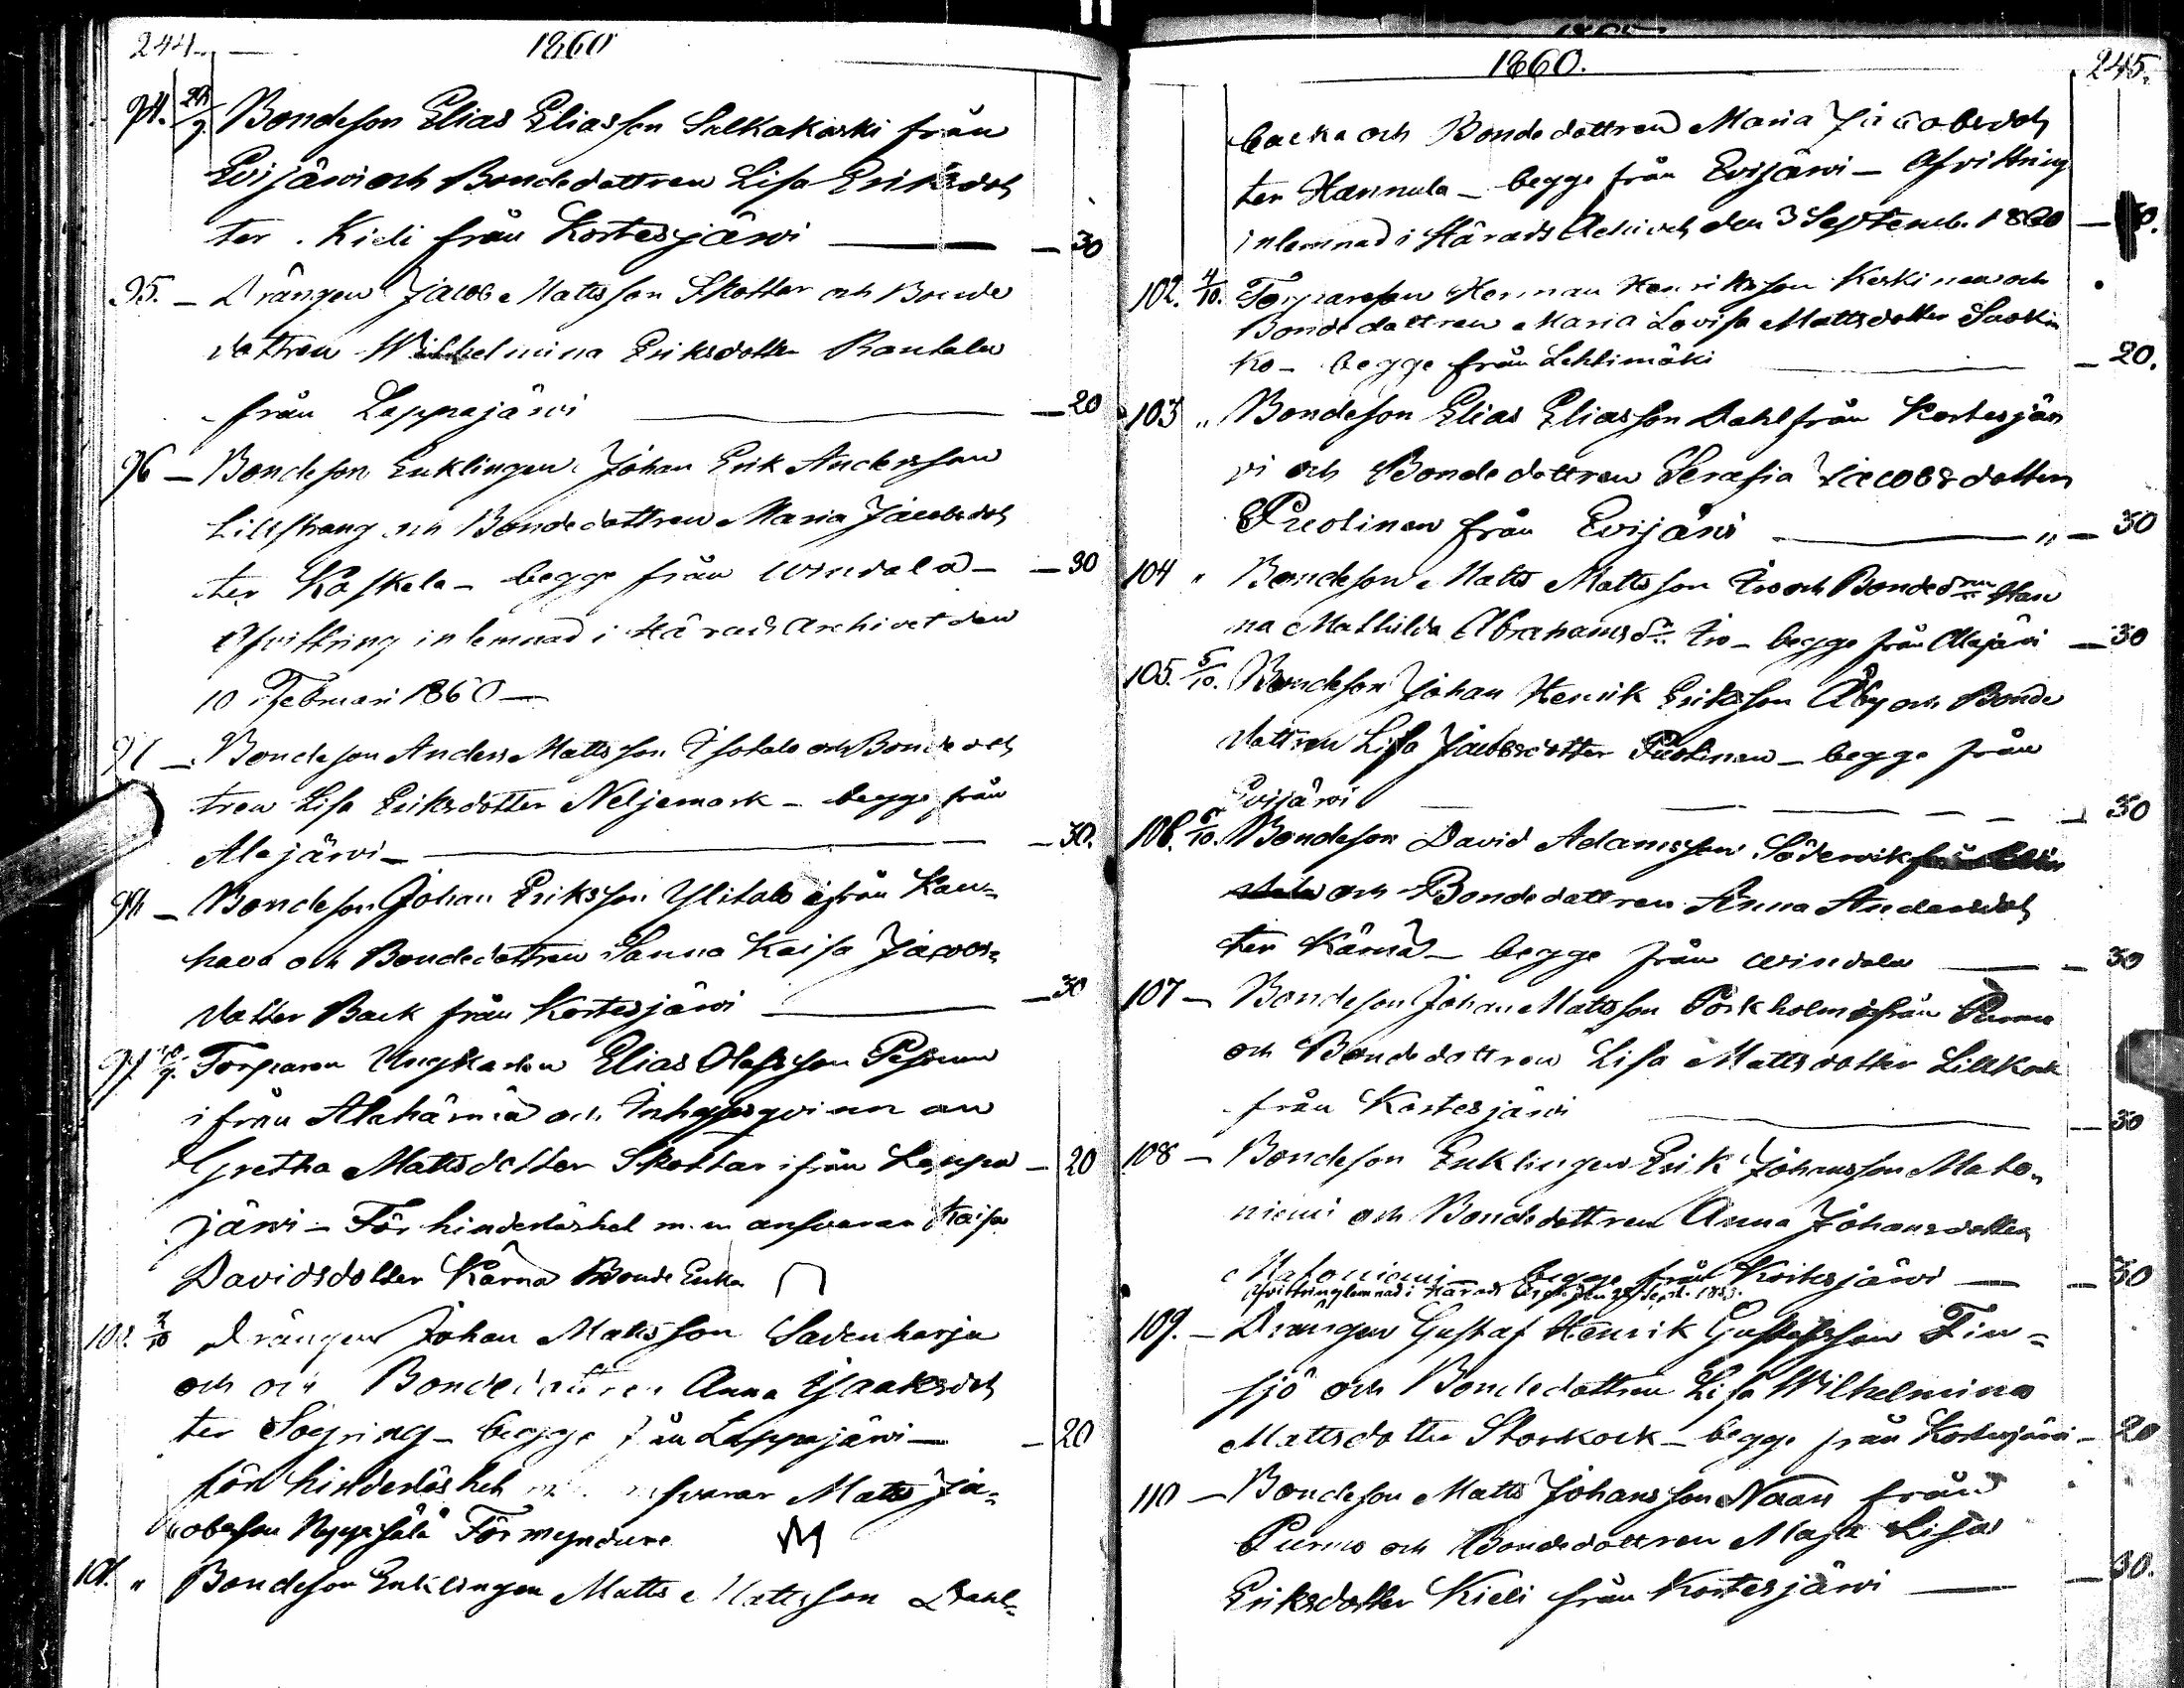 244.
1860
94. 29/9. Bondeson Elias Eliasson Salkakoski från
Evijärvi och Bondedottren Lisa Eriksdot
ter Kieli från Kortesjärvi — 30
95. — Drängen Jacob Mattsson Skottar och Bonde
dottren Wilhelmina Eriksdotter Rantala
från Lappajärvi — 20
96 — Bondeson Enklingen Johan Erik Andersson
Lillstrang och Bondedottren Maria Jacobsdot
ter Koskela — begge från Windala — 30
Afvittring inlemnad i Härads Archivet den
10 Februari 1860 —
97 — Bondeson Anders Mattsson Isotalo och Bondedot
tren Lisa Eriksdotter Neljemark — begge från
Alajärvi — 30.
98 — Bondeson Johan Eriksson Ylitalo ifrån Kau=
hava och Bondedottren Sanna Kaisa Jacobs=
dotter Back från Kortesjärvi — 30
99. Torparen Ungkarlen Elias Olofsson Pesonen
ifrån Alahärmä och Inhysesqvinnan
Gretha Mattsdotter Skottar ifrån Lappa — 20
järvi — För hinderlöshet m.m ansvarar Kaisa
Davidsdotter Kärnä Bonde Enka
100. 2/10 Drängen Johan Mattsson Sadenharju
och Bondedottren Anna Jaaksdot
ter Söyring — begge från Lappajärvi — 20
för hinderlöshet ansvarar Matts Ja=
cobsson Nygesälä Förmyndare
101. " Bondeson Enklingen Matts Mattsson Dahl=
1860.
245.
backa och Bondedottren Maria Jacobsdot
ter Hannula — begge från Evijärvi — Afvittring
inlemnad i Härads Achivet den 3 Septemb. 1860 —
102. 4/10. Torpareson Herman Henriksson Keskinen och
Bondedottren Maria Lovisa Mattsdotter Suokin
ko — begge från Lehtimäki — 20.
103 " Bondeson Elias Eliasson Dahl från Kortesjär
vi och Bondedottren Serafia Jacobsdotter
Puolinen från Evijärvi " — 30
104 " Bondeson Matts Mattsson Iso och Bondedrn Han
na Mathilda Abrahamsdr Iso — begge från Alajärvi — 30
105. 5/10. Bondeson Johan Henrik Eriksson Åby och Bonde
dottren Lisa Jacobsdotter Puolinen — begge från
Evijärvi — 30
106. 6/10. Bondeson David Adamsson Södervik
och Bondedottren Anna Andersdot
ter Kärnä — begge från Windala — 30
107 — Bondeson Johan Mattsson Pörkholm ifrån Purmo
och Bondedottren Lisa Mattsdotter Lillkock
från Kortesjärvi — 30
108 — Bondeson Enklingen Erik Johansson Mato=
niemi och Bondedottren Anna Johansdotter
Matoniemi begge från Kortesjärvi — 30
Afvittring lemnad i Härads den 28 Sept. 1853.
109. — Drängen Gustaf Henrik Gustafsson Fin=
sjö och Bondedottren Lisa Wilhelmina
Mattsdotter Storkock — begge från Kortesjärvi — 20
110 — Bondeson Matts Johansson Naars från
Purmo och Bondedottren Maja Lisa
Eriksdotter Kieli från Kortesjärvi — 30.